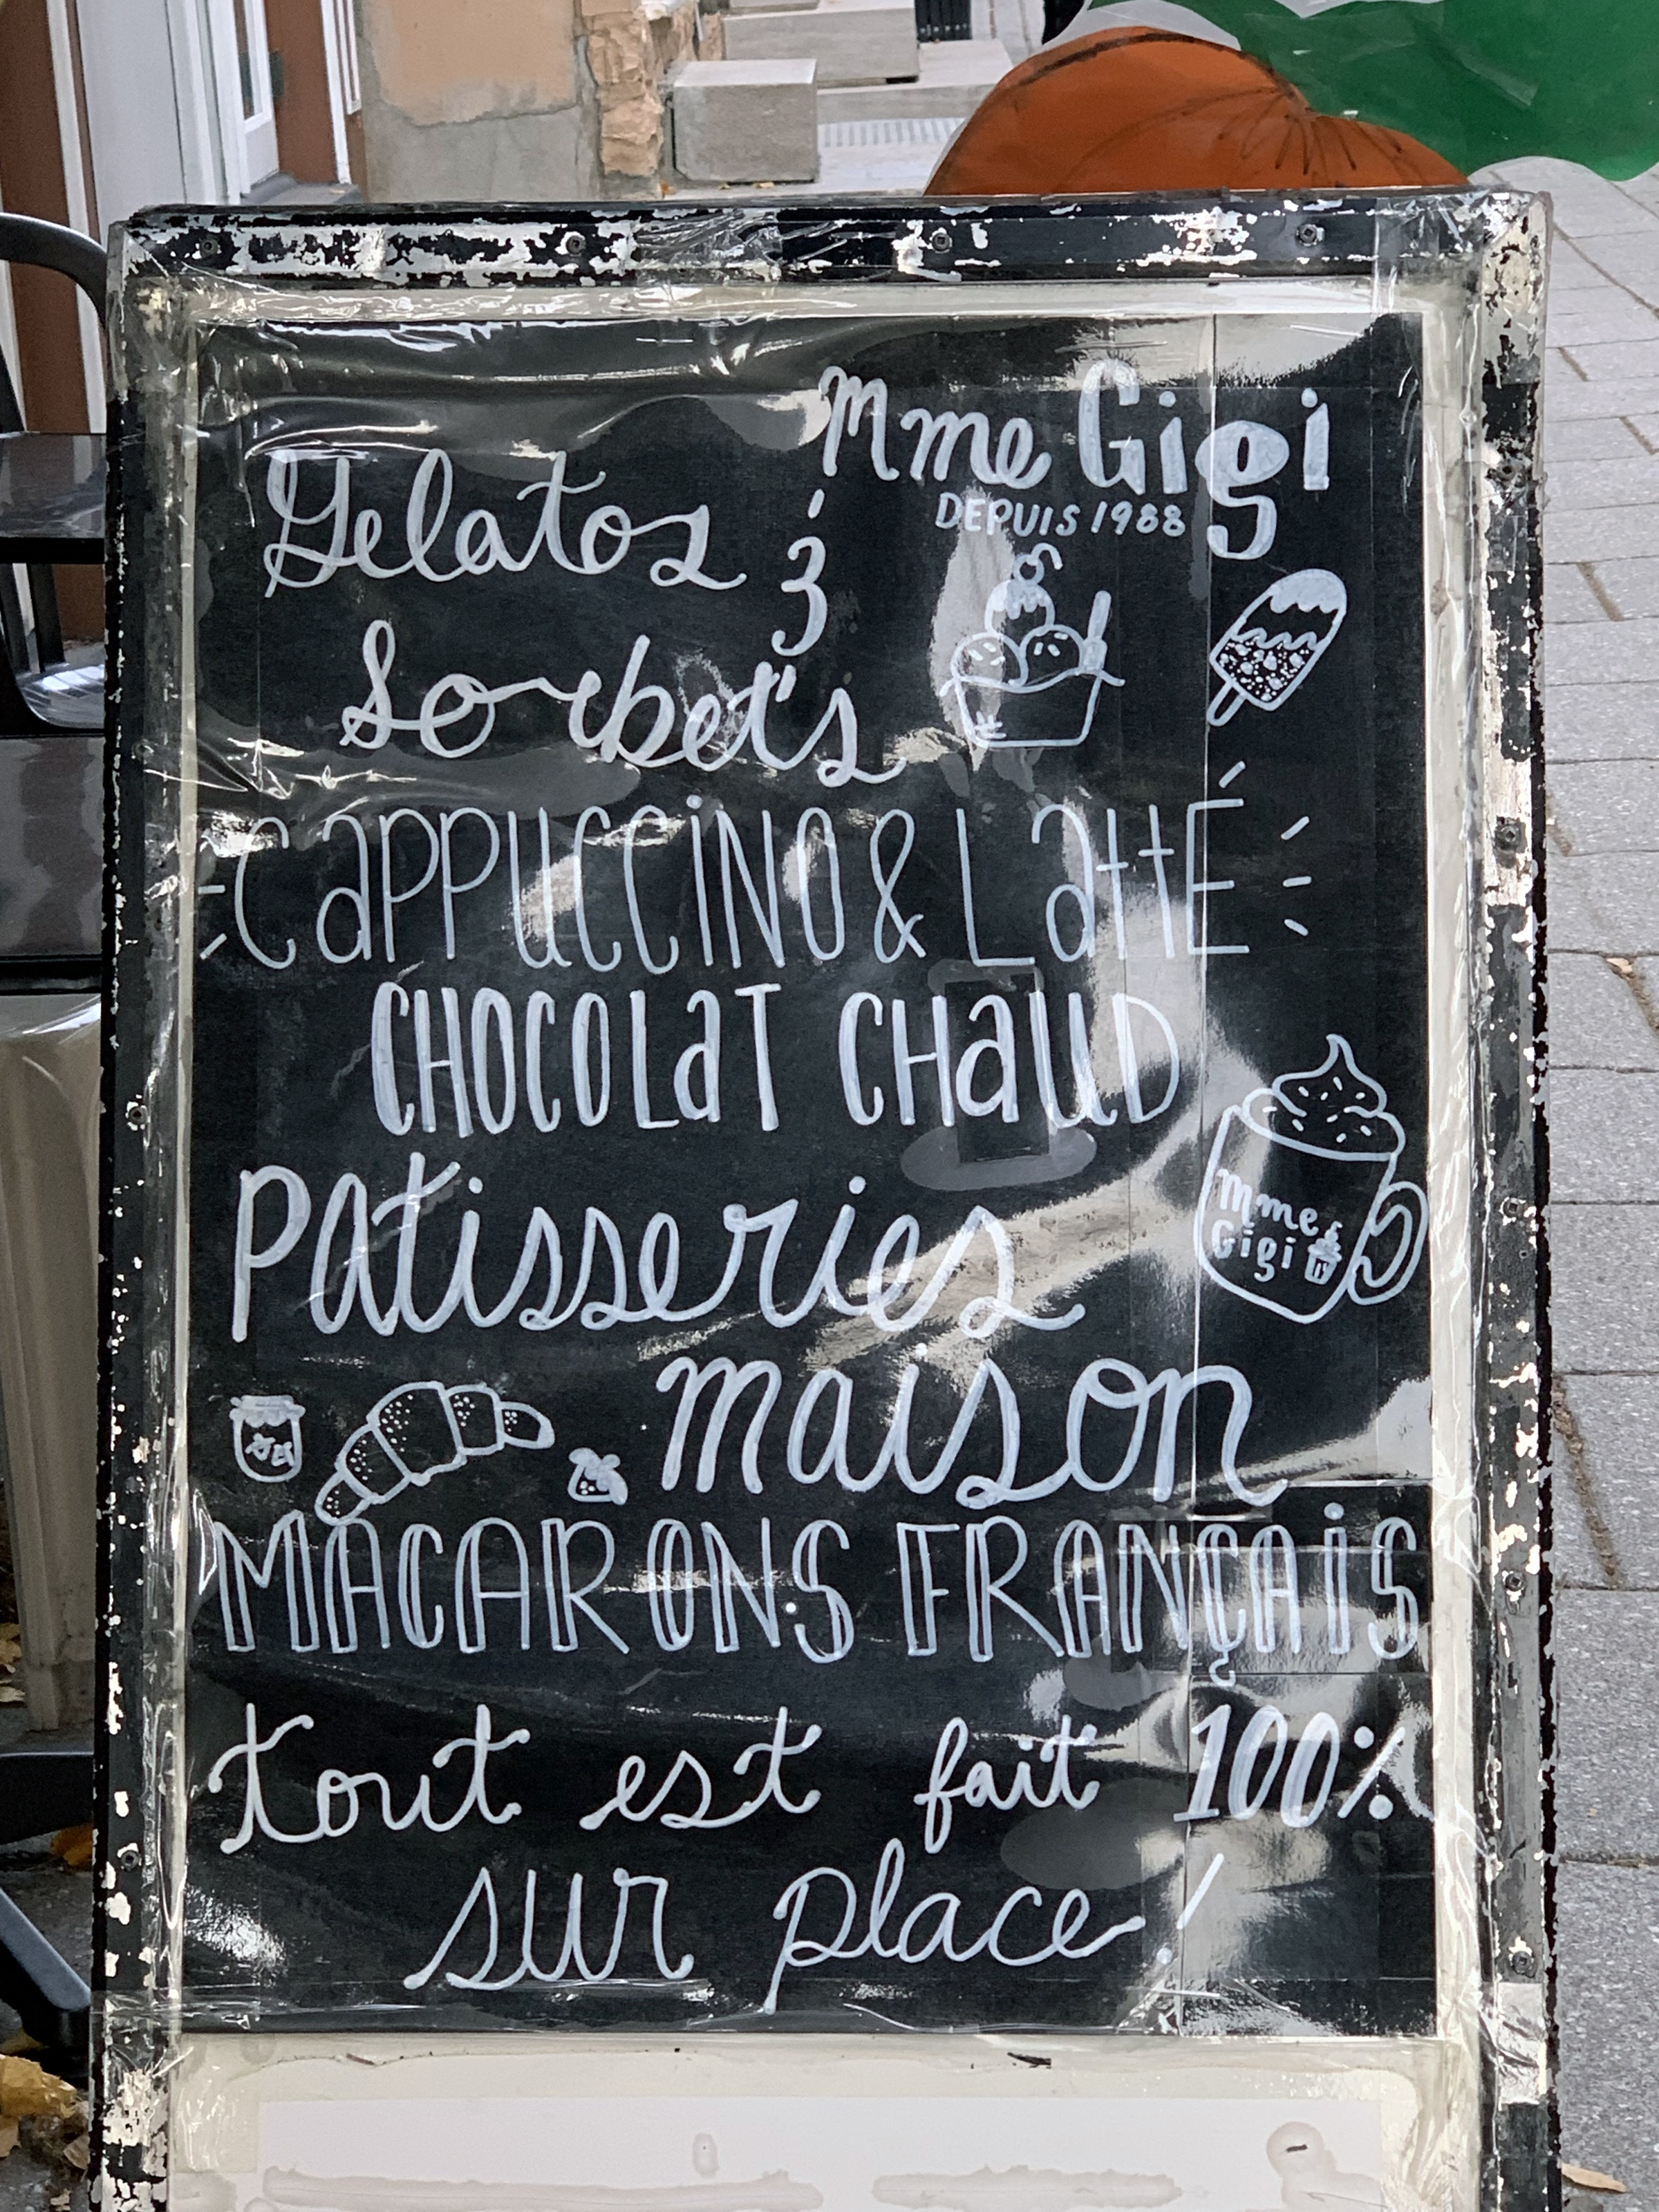 Mme Gigi
DEPUIS 1988
Gelatos &
Sorbets
CAPPUCCINO & LATTÉ
CHOCOLAT CHAUD
Patisseries
Mme
Gigi
maison
MACARONS FRANÇAIS
tout est fait 100%
sur place!